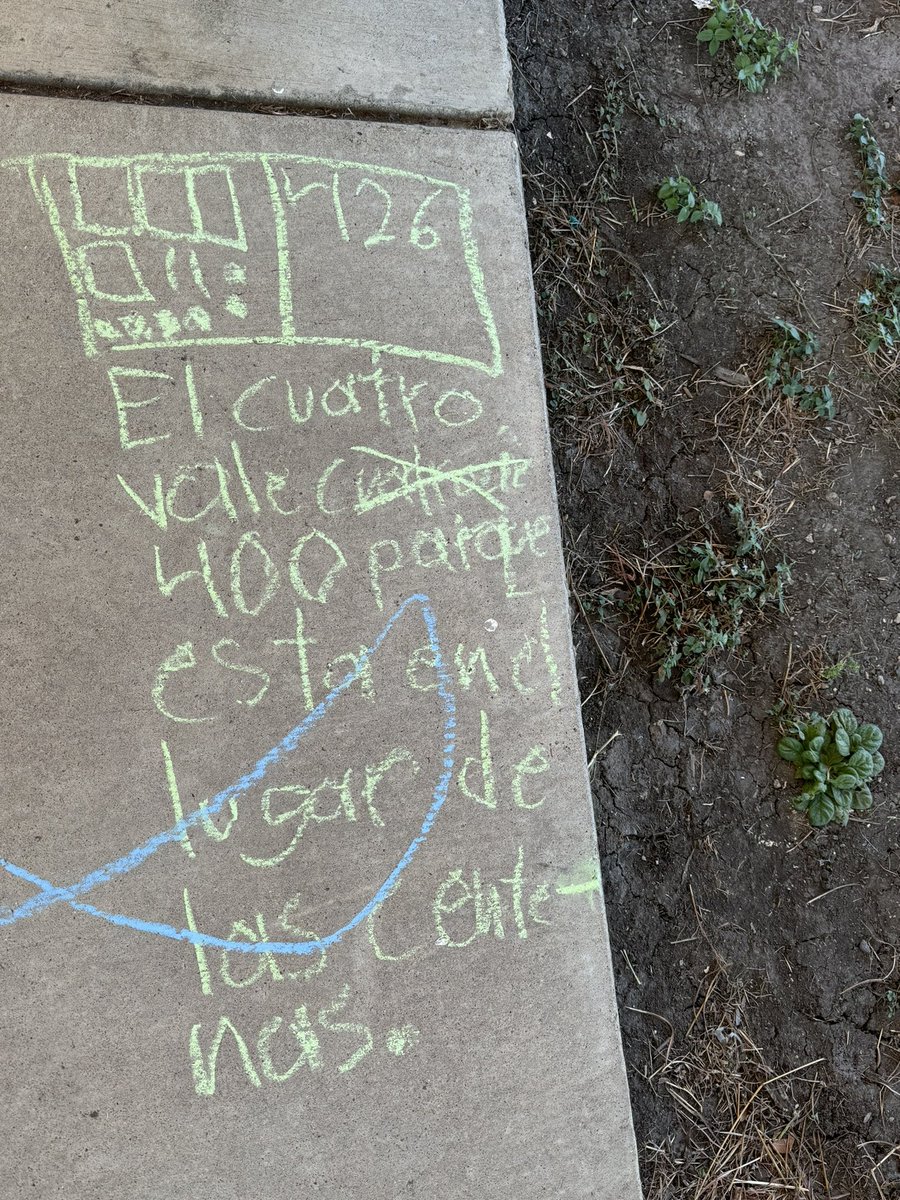 426
El cuatro
vale
400 parque
esta en el
lugar de
las cente-
nas.